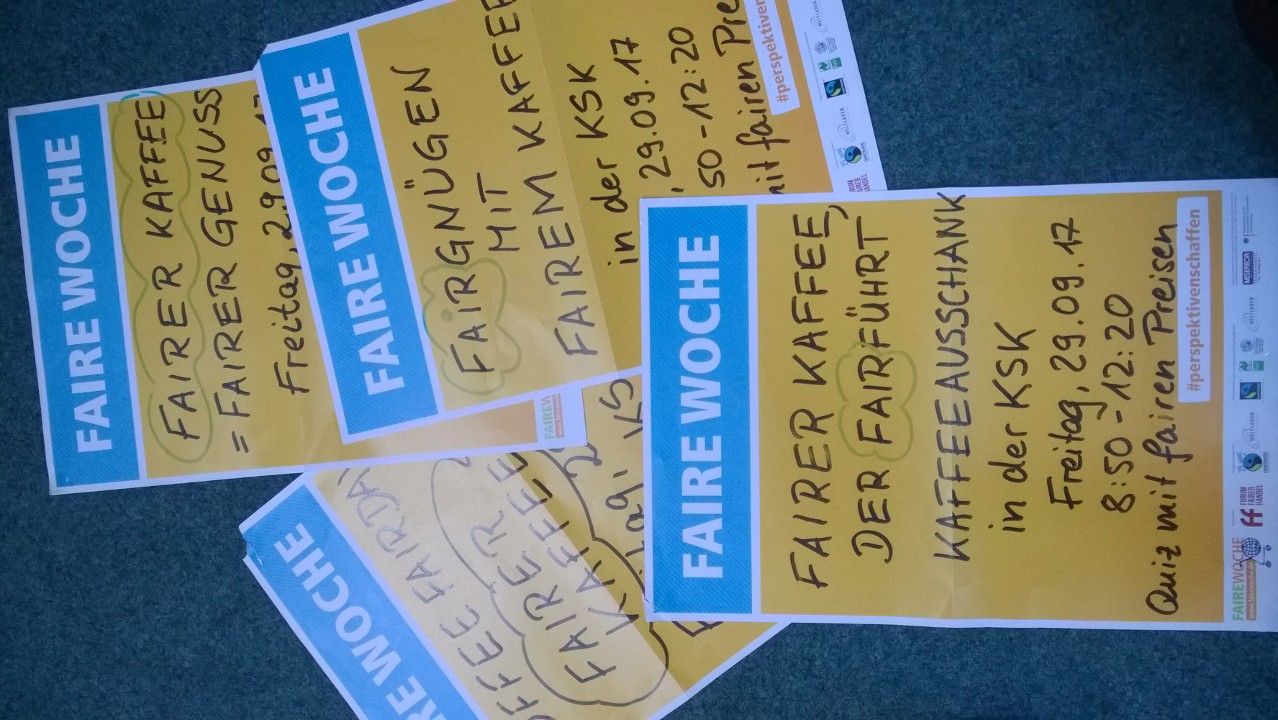 FAIRE WOCHE
FAIRER KAFFEE
= FAIRER GENUSS
Freitag, 29.09.17
FAIRE WOCHE
FAIRGNÜGEN
MIT
FAIREM KAFFEE
in der KSK
, 29.09.17
50-12:20
mit fairen Pre
#perspektiven
FAIRE WOCHE
FAIRER KAFFEE,
DER FAIRFÜHRT
KAFFEEAUSSCHANK
in der KSK
Freitag, 29.09.17
8:50-12:20
Quiz mit fairen Preisen
#perspektivenschaffen
FAIREWOCHE
FORUM
FAIRER
HANDEL
WELTLADEN
MISEREOR
RE WOCHE
OFFEE FAIRDA
FAIRER
KAFFEE